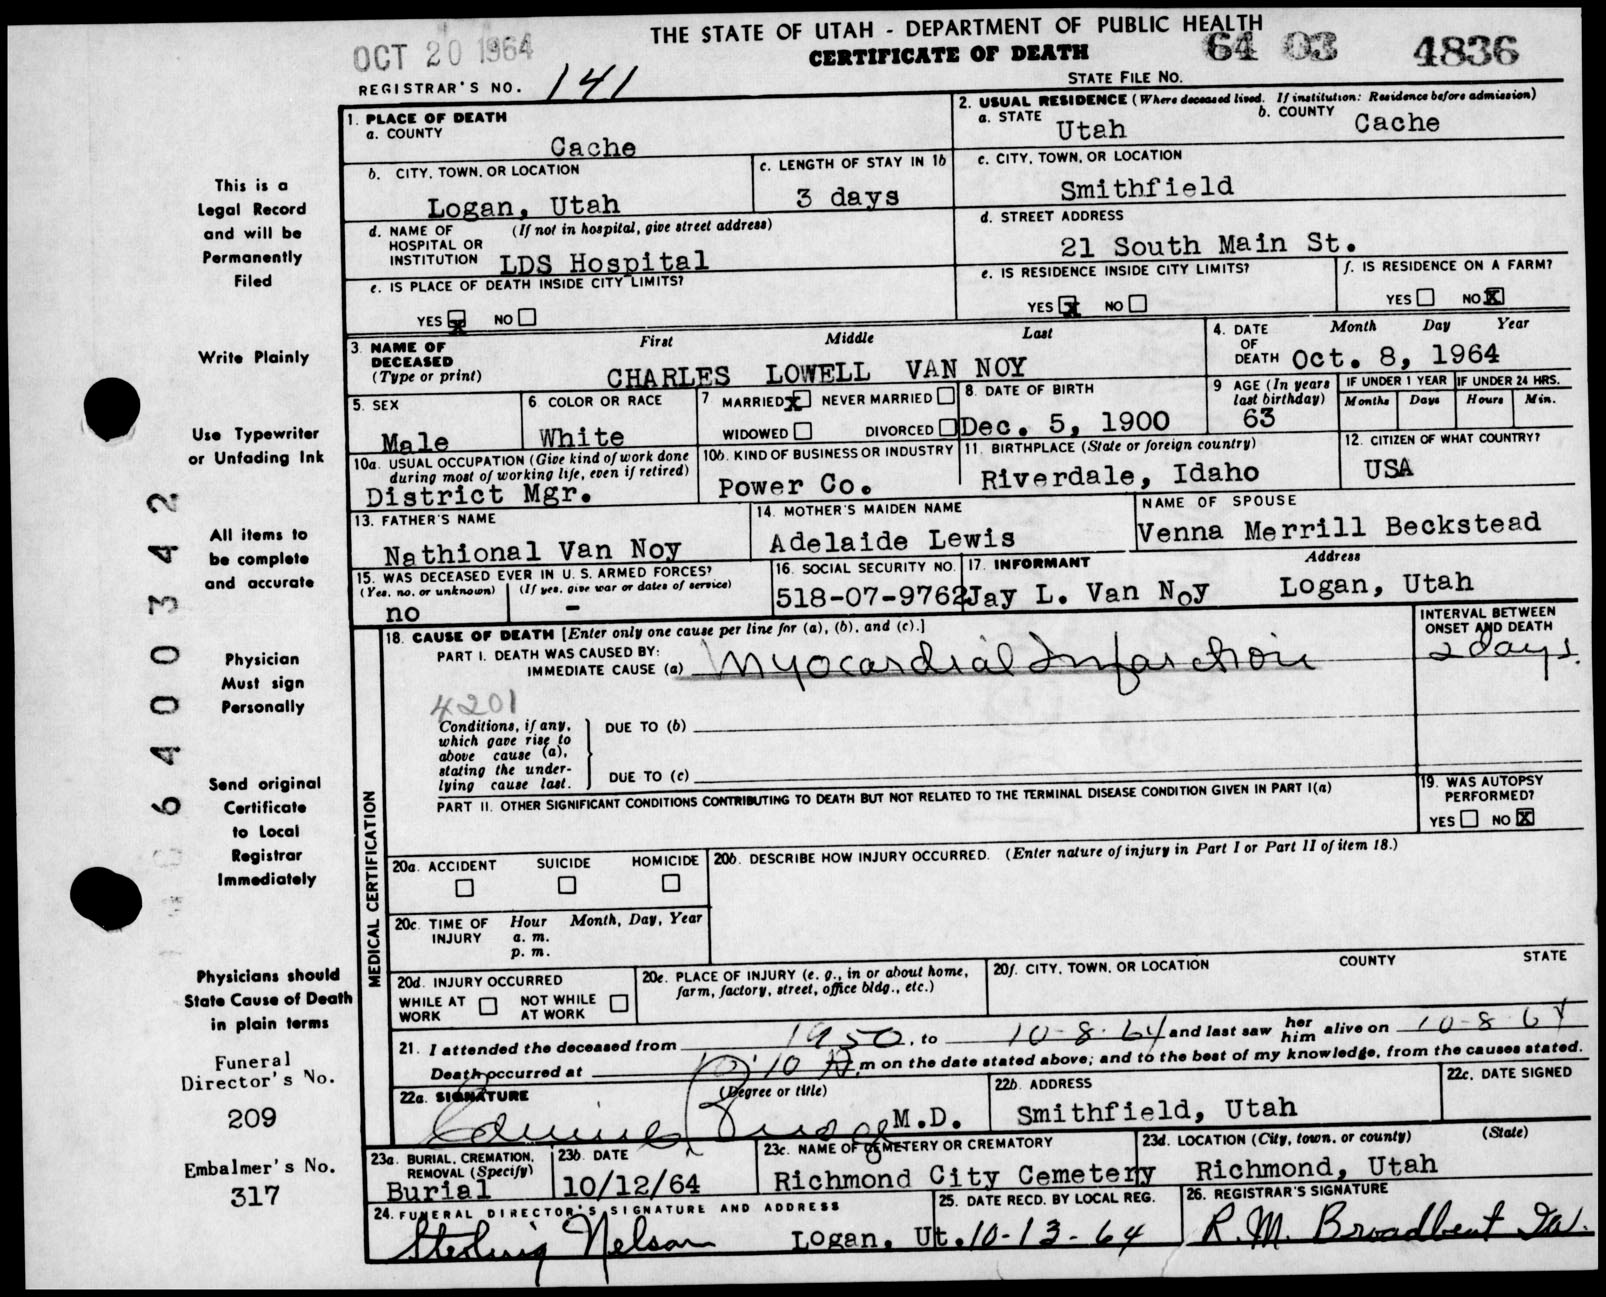 THE STATE OF UTAH - DEPARTMENT OF PUBLIC HEALTH
OCT 20 1964
CERTIFICATE OF DEATH
64 03 4836
REGISTRAR'S NO. 141
STATE FILE NO.
1. PLACE OF DEATH
a. COUNTY
Cache
2. USUAL RESIDENCE (Where deceased lived. If institution: Residence before admission)
a. STATE Utah b. COUNTY Cache
b. CITY, TOWN, OR LOCATION
Logan, Utah
c. LENGTH OF STAY IN 1b
3 days
c. CITY, TOWN, OR LOCATION
Smithfield
d. NAME OF HOSPITAL OR INSTITUTION (If not in hospital, give street address)
LDS Hospital
d. STREET ADDRESS
21 South Main St.
e. IS PLACE OF DEATH INSIDE CITY LIMITS?
YES X NO
e. IS RESIDENCE INSIDE CITY LIMITS?
YES X NO
f. IS RESIDENCE ON A FARM?
YES NO X
3. NAME OF DECEASED (Type or print)
First Middle Last
CHARLES LOWELL VAN NOY
4. DATE OF DEATH Month Day Year
Oct. 8, 1964
5. SEX
Male
6. COLOR OR RACE
White
7. MARRIED X NEVER MARRIED
WIDOWED DIVORCED
8. DATE OF BIRTH
Dec. 5, 1900
9 AGE (In years last birthday)
63
IF UNDER 1 YEAR
Months Days
IF UNDER 24 HRS.
Hours Min.
10a. USUAL OCCUPATION (Give kind of work done during most of working life, even if retired)
District Mgr.
10b. KIND OF BUSINESS OR INDUSTRY
Power Co.
11. BIRTHPLACE (State or foreign country)
Riverdale, Idaho
12. CITIZEN OF WHAT COUNTRY?
USA
13. FATHER'S NAME
Nathional Van Noy
14. MOTHER'S MAIDEN NAME
Adelaide Lewis
NAME OF SPOUSE
Venna Merrill Beckstead
15. WAS DECEASED EVER IN U. S. ARMED FORCES?
(Yes, no, or unknown) (If yes, give war or dates of service)
no -
16. SOCIAL SECURITY NO.
518-07-9762
17. INFORMANT Address
Jay L. Van Noy Logan, Utah
MEDICAL CERTIFICATION
18. CAUSE OF DEATH [Enter only one cause per line for (a), (b), and (c).]
INTERVAL BETWEEN ONSET AND DEATH
PART I. DEATH WAS CAUSED BY:
IMMEDIATE CAUSE (a) Myocardial Infarction 2 days.
4201
Conditions, if any, which gave rise to above cause (a), stating the underlying cause last.
DUE TO (b)
DUE TO (c)
PART II. OTHER SIGNIFICANT CONDITIONS CONTRIBUTING TO DEATH BUT NOT RELATED TO THE TERMINAL DISEASE CONDITION GIVEN IN PART I(a)
19. WAS AUTOPSY PERFORMED?
YES NO X
20a. ACCIDENT SUICIDE HOMICIDE
20b. DESCRIBE HOW INJURY OCCURRED. (Enter nature of injury in Part I or Part II of item 18.)
20c. TIME OF INJURY Hour Month, Day, Year
a. m.
p. m.
20d. INJURY OCCURRED
WHILE AT WORK NOT WHILE AT WORK
20e. PLACE OF INJURY (e. g., in or about home, farm, factory, street, office bldg., etc.)
20f. CITY, TOWN, OR LOCATION COUNTY STATE
21. I attended the deceased from 1950, to 10-8-64 and last saw her him alive on 10-8-64
Death occurred at 10 A.m on the date stated above; and to the best of my knowledge, from the causes stated.
22a. SIGNATURE (Degree or title)
M.D.
22b. ADDRESS
Smithfield, Utah
22c. DATE SIGNED
23a. BURIAL, CREMATION, REMOVAL (Specify)
Burial
23b. DATE
10/12/64
23c. NAME OF CEMETERY OR CREMATORY
Richmond City Cemetery
23d. LOCATION (City, town, or county) (State)
Richmond, Utah
24. FUNERAL DIRECTOR'S SIGNATURE AND ADDRESS
Sterling Nelson Logan, Ut.
25. DATE RECD. BY LOCAL REG.
10-13-64
26. REGISTRAR'S SIGNATURE
R. M. Broadbent
This is a
Legal Record
and will be
Permanently
Filed
Write Plainly
Use Typewriter
or Unfading Ink
All items to
be complete
and accurate
Physician
Must sign
Personally
Send original
Certificate
to Local
Registrar
Immediately
Physicians should
State Cause of Death
in plain terms
Funeral
Director's No.
209
Embalmer's No.
317
6400342